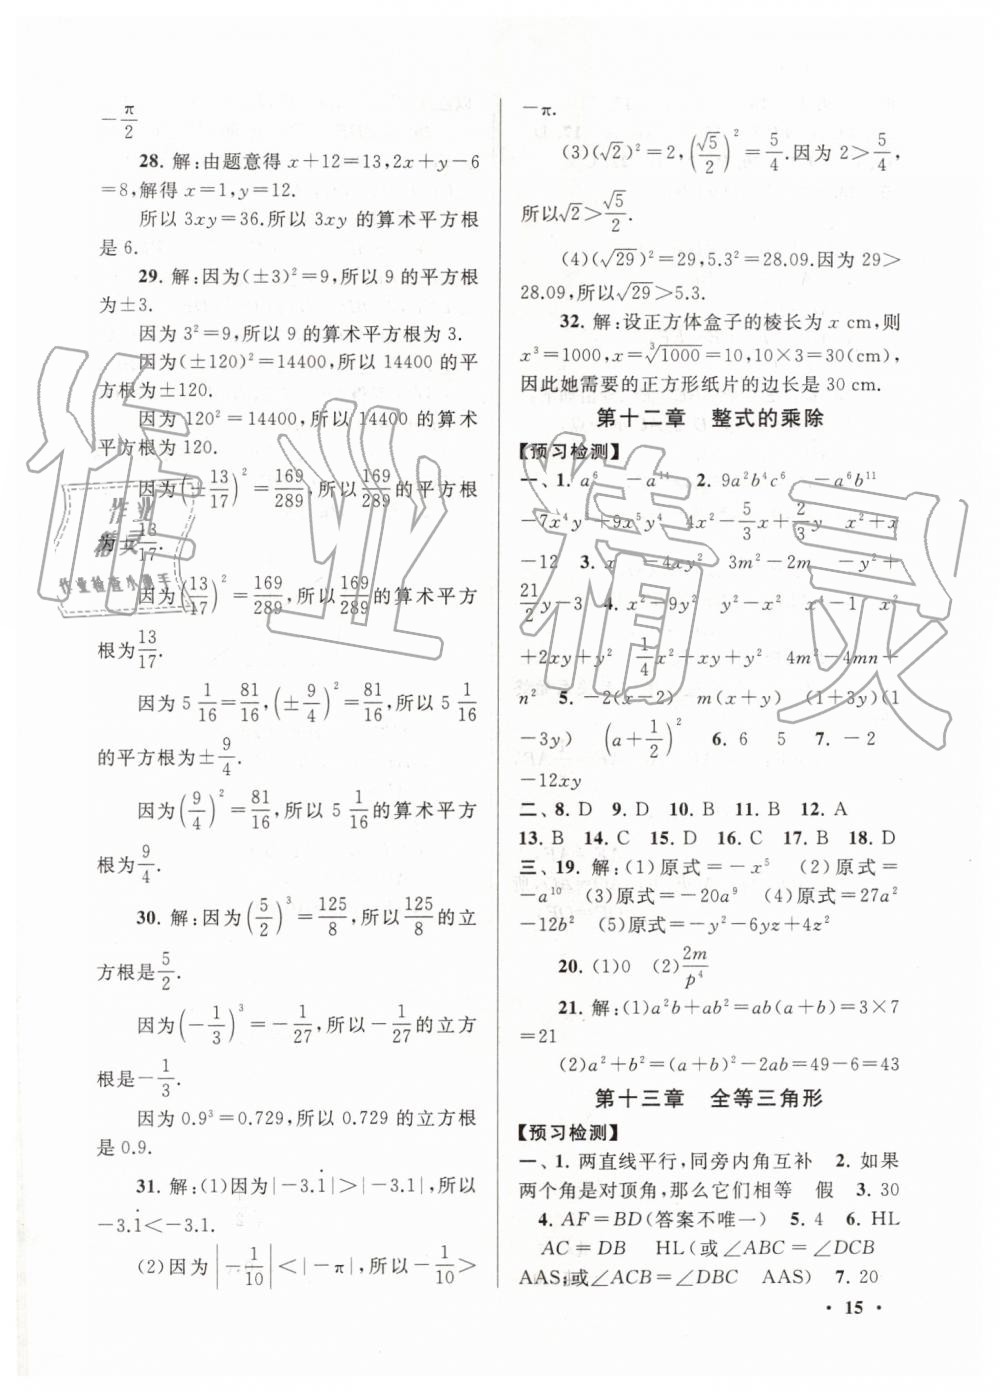 -π/2
28. 解:由题意得 x+12=13,2x+y-6
=8,解得 x=1,y=12.
所以 3xy=36.所以 3xy 的算术平方根
是 6.
29. 解:因为(±3)²=9,所以 9 的平方根
为±3.
因为 3²=9,所以 9 的算术平方根为 3.
因为(±120)²=14400,所以 14400 的平
方根为±120.
因为 120²=14400,所以 14400 的算术
平方根为 120.
因为(±13/17)²=169/289,所以169/289的平方根
为±13/17.
因为(13/17)²=169/289,所以169/289的算术平方
根为13/17.
因为 5 1/16=81/16,(±9/4)²=81/16,所以 5 1/16
的平方根为±9/4.
因为(9/4)²=81/16,所以 5 1/16的算术平方
根为9/4.
30. 解:因为(5/2)³=125/8,所以125/8的立
方根是5/2.
因为(-1/3)³=-1/27,所以-1/27的立方
根是-1/3.
因为 0.9³=0.729,所以 0.729 的立方根
是 0.9.
31. 解:(1)因为|-3.1̇|>|-3.1|,所以
-3.1̇<-3.1.
(2)因为|-1/10|<|-π|,所以-1/10>
-π.
(3)(√2)²=2,(√5/2)²=5/4.因为 2>5/4,
所以√2>√5/2.
(4)(√29)²=29,5.3²=28.09.因为 29>
28.09,所以√29>5.3.
32. 解:设正方体盒子的棱长为 x cm,则
x³=1000,x=∛1000=10,10×3=30(cm),
因此她需要的正方形纸片的边长是 30 cm.
第十二章 整式的乘除
【预习检测】
一、1. a⁶ -a¹⁴ 2. 9a²b⁴c⁶ -a⁶b¹¹
-7x⁴y +9x⁵y⁴ 4x²-5/3x+2/3y x²+x
-12 3. x -4x²y 3m²-2m -y²+
21/2y-3 4. x²-9y² y²-x² x⁴-1 x²
+2xy+y² 1/4x²+xy+y² 4m²-4mn+
n² 5. -2(x-2) m(x+y) (1+3y)(1
-3y) (a+1/2)² 6. 6 5 7. -2
-12xy
二、8. D 9. D 10. B 11. B 12. A
13. B 14. C 15. D 16. C 17. B 18. D
三、19. 解:(1)原式=-x⁵ (2)原式=
-a¹⁰ (3)原式=-20a⁹ (4)原式=27a²
-12b² (5)原式=-y²-6yz+4z²
20. (1)0 (2)2m/p⁴
21. 解:(1)a²b+ab²=ab(a+b)=3×7
=21
(2)a²+b²=(a+b)²-2ab=49-6=43
第十三章 全等三角形
【预习检测】
一、1. 两直线平行,同旁内角互补 2. 如果
两个角是对顶角,那么它们相等 假 3. 30
4. AF=BD(答案不唯一) 5. 4 6. HL
AC=DB HL(或∠ABC=∠DCB
AAS;或∠ACB=∠DBC AAS) 7. 20
· 15 ·
作业精灵
作业
精灵
作业检查小助手